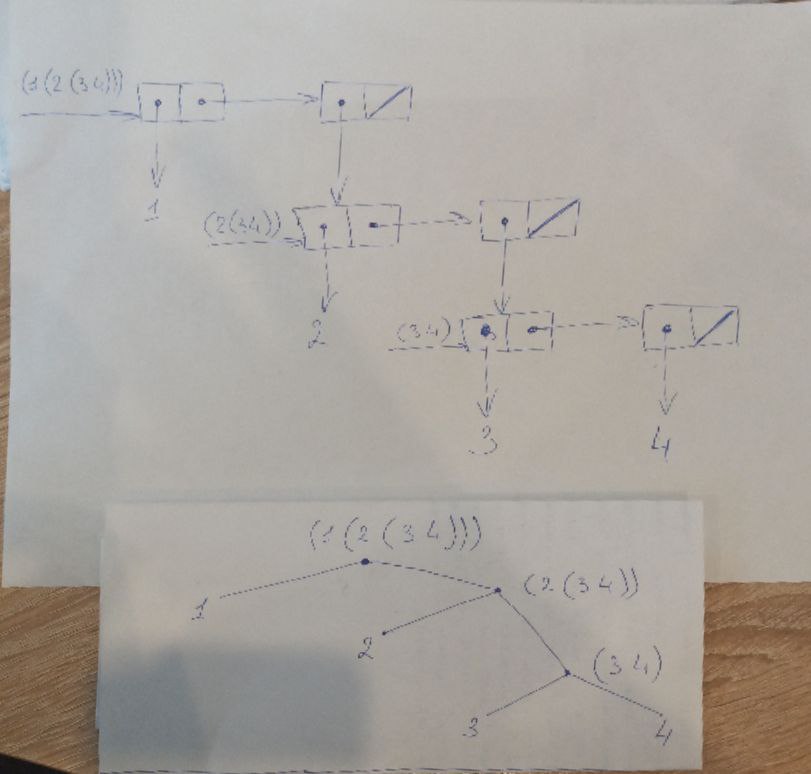 (1(2(34)))
1
(2(34))
2
(34)
3 4
(1(2(34)))
1
(2(34))
2
(34)
3
4